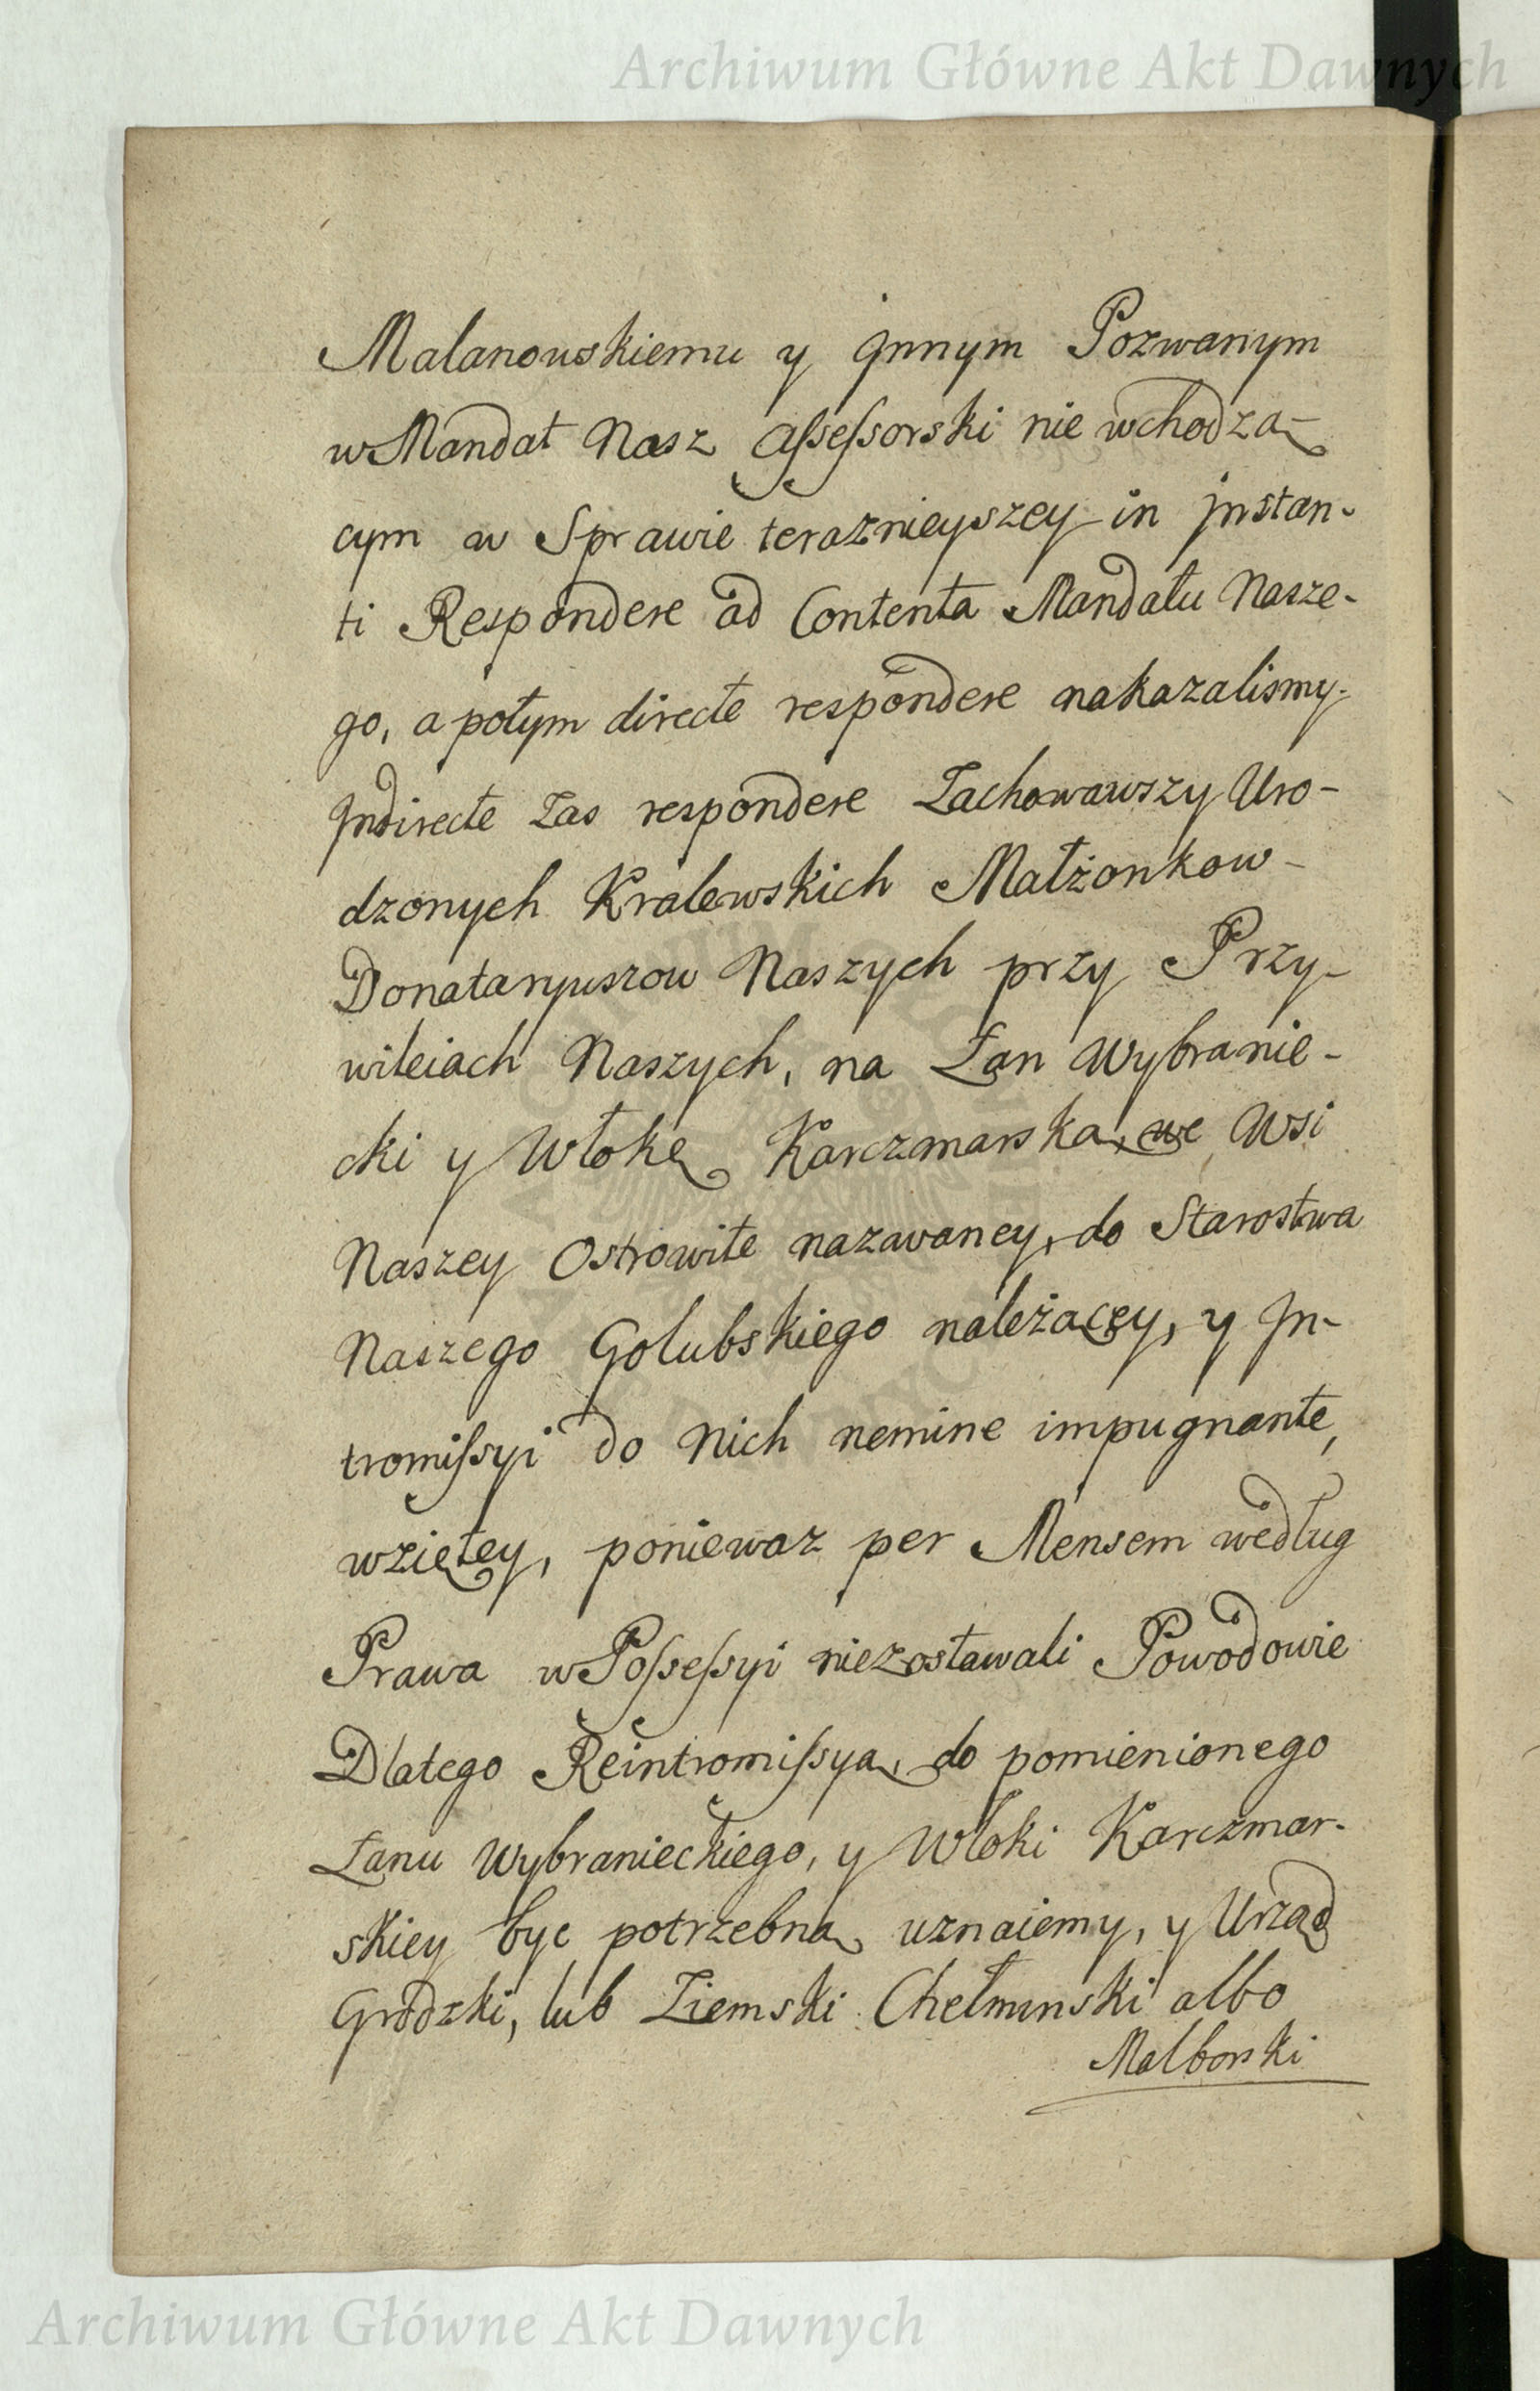 Archiwum Główne Akt Dawnych
Malanowskiemu y Jnnym Pozwanym
w Mandat Nasz Assessorski nie wchodzą-
cym w Sprawie teraznieyszey in Jnstan-
ti Respondere ad Contenta Mandatu Nasze-
go, a potym directe respondere nakazalismy.
Jndirecte Zas respondere Zachowawszy Uro-
dzonych Kralewskich Małżonkow-
Donataryuszow Naszych przy Przy-
wileiach Naszych, na Łan Wybranie-
cki y Włokę Karczmarską, we Wsi
Naszey Ostrowite nazwaney, do Starostwa
Naszego Golubskiego należącey, y Jn-
tromissyi do Nich nemine impugnante,
wziętey, poniewaz per Mensem według
Prawa w Possessyi niezostawali Powodowie
Dlatego Reintromissyą, do pomienionego
Łanu Wybranieckiego, y Włoki Karczmar-
skiey byc potrzebną uznaiemy, y Urząd
Grodzki, lub Ziemski Chełminski albo
Malborski
Archiwum Główne Akt Dawnych